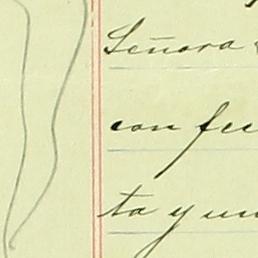 Señora
con fe
ta y un